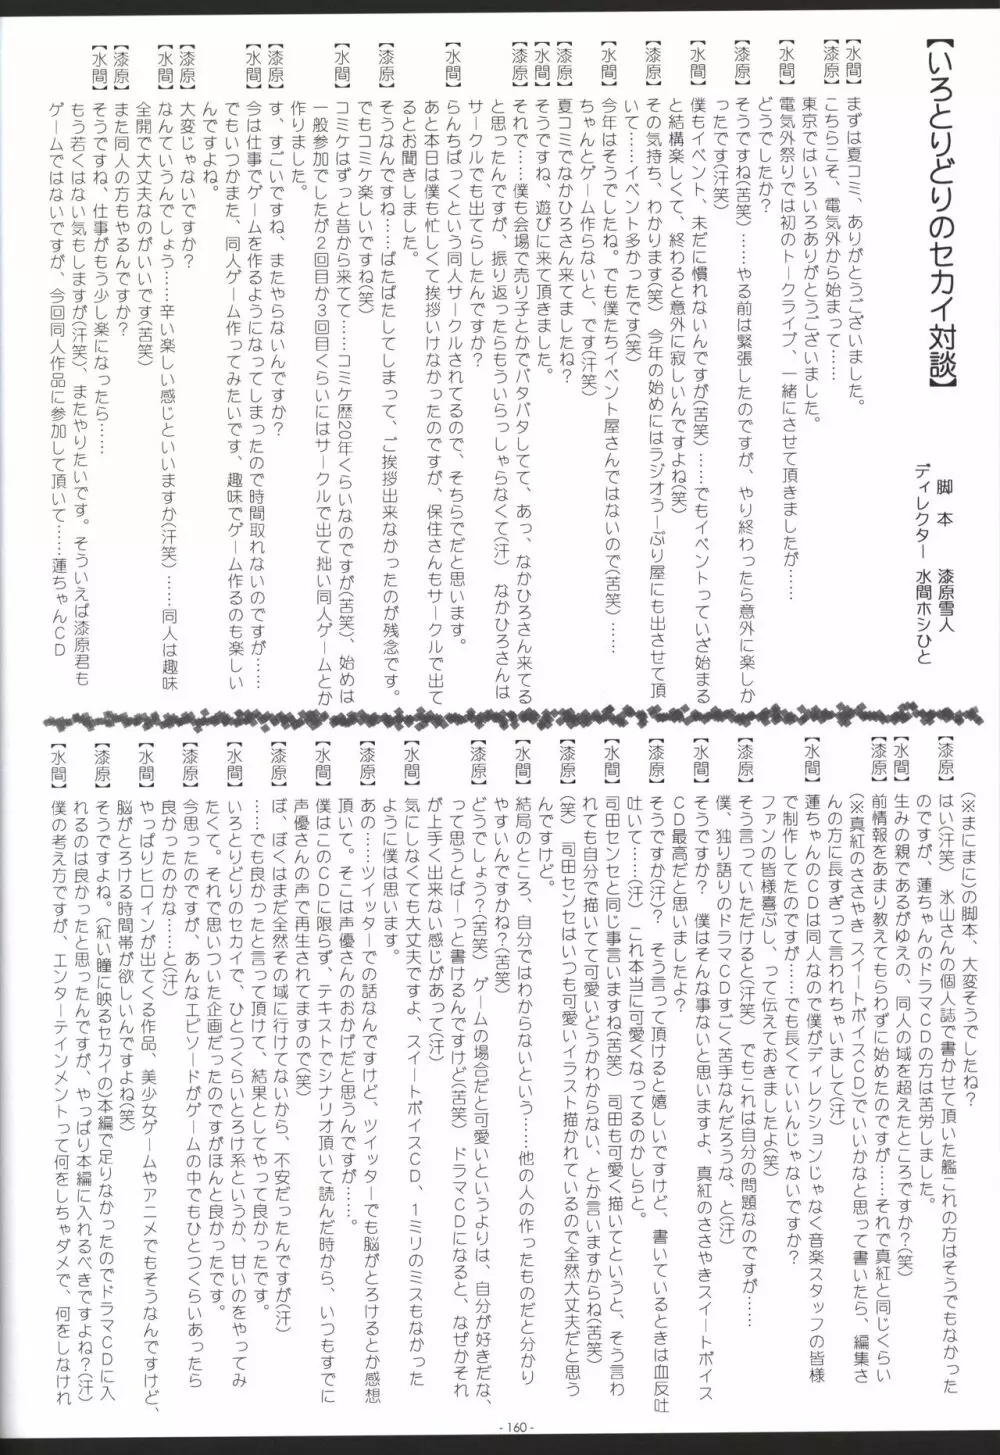 【いろとりどりのセカイ対談】
脚　本　　漆原雪人
ディレクター　水間ホシひと
【水間】まずは夏コミ、ありがとうございました。
【漆原】こちらこそ、電気外から始まって……
東京ではいろいろありがとうございました。
【水間】電気外祭りでは初のトークライブ、一緒にさせて頂きましたが……
どうでしたか？
【漆原】そうですね(苦笑)……やる前は緊張したのですが、やり終わったら意外に楽しか
ったです(汗笑)
【水間】僕もイベント、未だに慣れないんですが(苦笑)……でもイベントっていざ始まる
と結構楽しくて、終わると意外に寂しいんですよね(笑)
【漆原】その気持ち、わかります(笑)　今年の始めにはラジオうーぷり屋にも出させて頂
いて……イベント多かったです(笑)
【水間】今年はそうでしたね。でも僕たちイベント屋さんではないので(苦笑)……
ちゃんとゲーム作らないと、です(汗笑)
【漆原】夏コミでなかひろさん来てましたね？
【水間】そうですね、遊びに来て頂きました。
【漆原】それで……僕も会場で売り子とかでバタバタしてて、あっ、なかひろさん来てる
と思ったんですが、振り返ったらもういらっしゃらなくて(汗)　なかひろさんは
サークルでも出てらしたんですか？
【水間】らんちぱっくという同人サークルされてるので、そちらでだと思います。
あと本日は僕も忙しくて挨拶いけなかったのですが、保住さんもサークルで出て
るとお聞きしました。
【漆原】そうなんですね……ばたばたしてしまって、ご挨拶出来なかったのが残念です。
でもコミケ楽しいですね(笑)
【水間】コミケはずっと昔から来てて……コミケ歴20年くらいなのですが(苦笑)、始めは
一般参加でしたが２回目か３回目くらいにはサークルで出て拙い同人ゲームとか
作りました。
【漆原】す、すごいですね、またやらないんですか？
【水間】今は仕事でゲームを作るようになってしまったので時間取れないのですが……
でもいつかまた、同人ゲーム作ってみたいです、趣味でゲーム作るのも楽しい
んですよね。
【漆原】大変じゃないですか？
【水間】なんていうんでしょう……辛い楽しい感じといいますか(汗笑)……同人は趣味
全開で大丈夫なのがいいです(苦笑)
【漆原】また同人の方もやるんですか？
【水間】そうですね、仕事がもう少し楽になったら……
もう若くはない気もしますが(汗笑)、またやりたいです。そういえば漆原君も
ゲームではないですが、今回同人作品に参加して頂いて……蓮ちゃんＣＤ
(※まにまに)の脚本、大変そうでしたね？
【漆原】はい(汗笑)　氷山さんの個人誌で書かせて頂いた艦これの方はそうでもなかった
のですが、蓮ちゃんのドラマＣＤの方は苦労しました。
【水間】生みの親であるがゆえの、同人の域を超えたところですか？(笑)
【漆原】前情報をあまり教えてもらわずに始めたのですが……それで真紅と同じくらい
(※真紅のささやき スイートボイスＣＤ)でいいかなと思って書いたら、編集さ
んの方に長すぎって言われちゃいまして(汗)
【水間】蓮ちゃんのＣＤは同人なので僕がディレクションじゃなく音楽スタッフの皆様
で制作してたのですが……でも長くていいんじゃないですか？
ファンの皆様喜ぶし、って伝えておきましたよ(笑)
【漆原】そう言っていただけると(汗笑)　でもこれは自分の問題なのですが……
僕、独り語りのドラマＣＤすごく苦手なんだろうな、と(汗)
【水間】そうですか？　僕はそんな事ないと思いますよ、真紅のささやきスイートボイス
ＣＤ最高だと思いましたよ？
【漆原】そうですか(汗)？　そう言って頂けると嬉しいですけど、書いているときは血反吐
吐いて……(汗)　これ本当に可愛くなってるのかしらと。
【水間】司田センセと同じ事言いますね(苦笑)　司田も可愛く描いてというと、そう言わ
れても自分で描いてて可愛いどうかわからない、とか言いますからね(苦笑)
【漆原】(笑)　司田センセはいつも可愛いイラスト描かれているので全然大丈夫だと思う
んですけど。
【水間】結局のところ、自分ではわからないという……他の人の作ったものだと分かり
やすいんですかね？(苦笑)
【漆原】どうでしょう？(苦笑)　ゲームの場合だと可愛いというよりは、自分が好きだな、
って思うとぱーっと書けるんですけど(苦笑)　ドラマＣＤになると、なぜかそれ
が上手く出来ない感じがあって(汗)
【水間】気にしなくても大丈夫ですよ、スイートボイスＣＤ、１ミリのミスもなかった
ように僕は思います。
【漆原】あの……ツイッターでの話なんですけど、ツイッターでも脳がとろけるとか感想
頂いて。そこは声優さんのおかげだと思うんですが……。
【水間】僕はこのＣＤに限らず、テキストでシナリオ頂いて読んだ時から、いつもすでに
声優さんの声で再生されてますので(笑)
【漆原】ぼ、ぼくはまだ全然その域に行けてないから、不安だったんですが(汗)
……でも良かったと言って頂けて、結果としてやって良かったです。
【水間】いろとりどりのセカイで、ひとつくらいとろけ系というか、甘いのをやってみ
たくて。それで思いついた企画だったのですがほんと良かったです。
【漆原】今思ったのですが、あんなエピソードがゲームの中でもひとつくらいあったら
良かったのかな……と(汗)
【水間】やっぱりヒロインが出てくる作品、美少女ゲームやアニメでもそうなんですけど、
脳がとろける時間帯が欲しいんですよね(笑)
【漆原】そうですよね。(紅い瞳に映るセカイの)本編で足りなかったのでドラマＣＤに入
れるのは良かったと思ったんですが、やっぱり本編に入れるべきですよね？(汗)
【水間】僕の考え方ですが、エンターテインメントって何をしちゃダメで、何をしなけれ
- 160 -